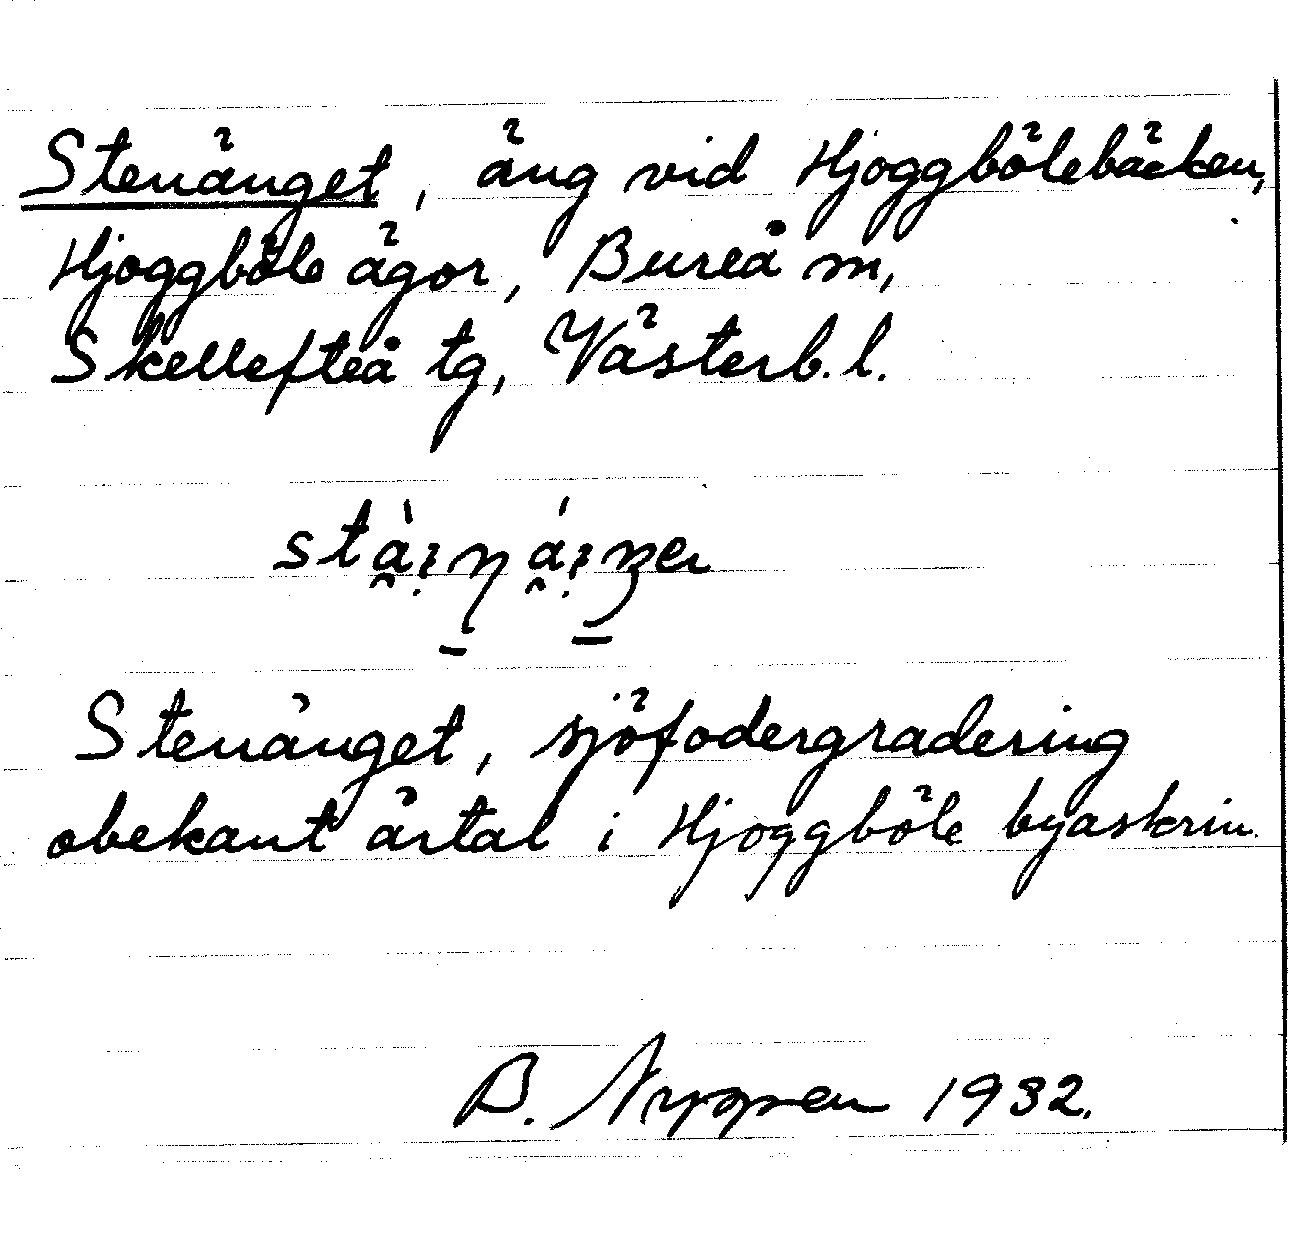 Stenänget, äng vid Hjoggbölebäcken,
Hjoggböle ägor, Bureå sn,
Skellefteå tg, Västerb. l.
Stenänget, sjöfodergradering
obekant årtal i Hjoggböle byaskrin.
B. 1932.